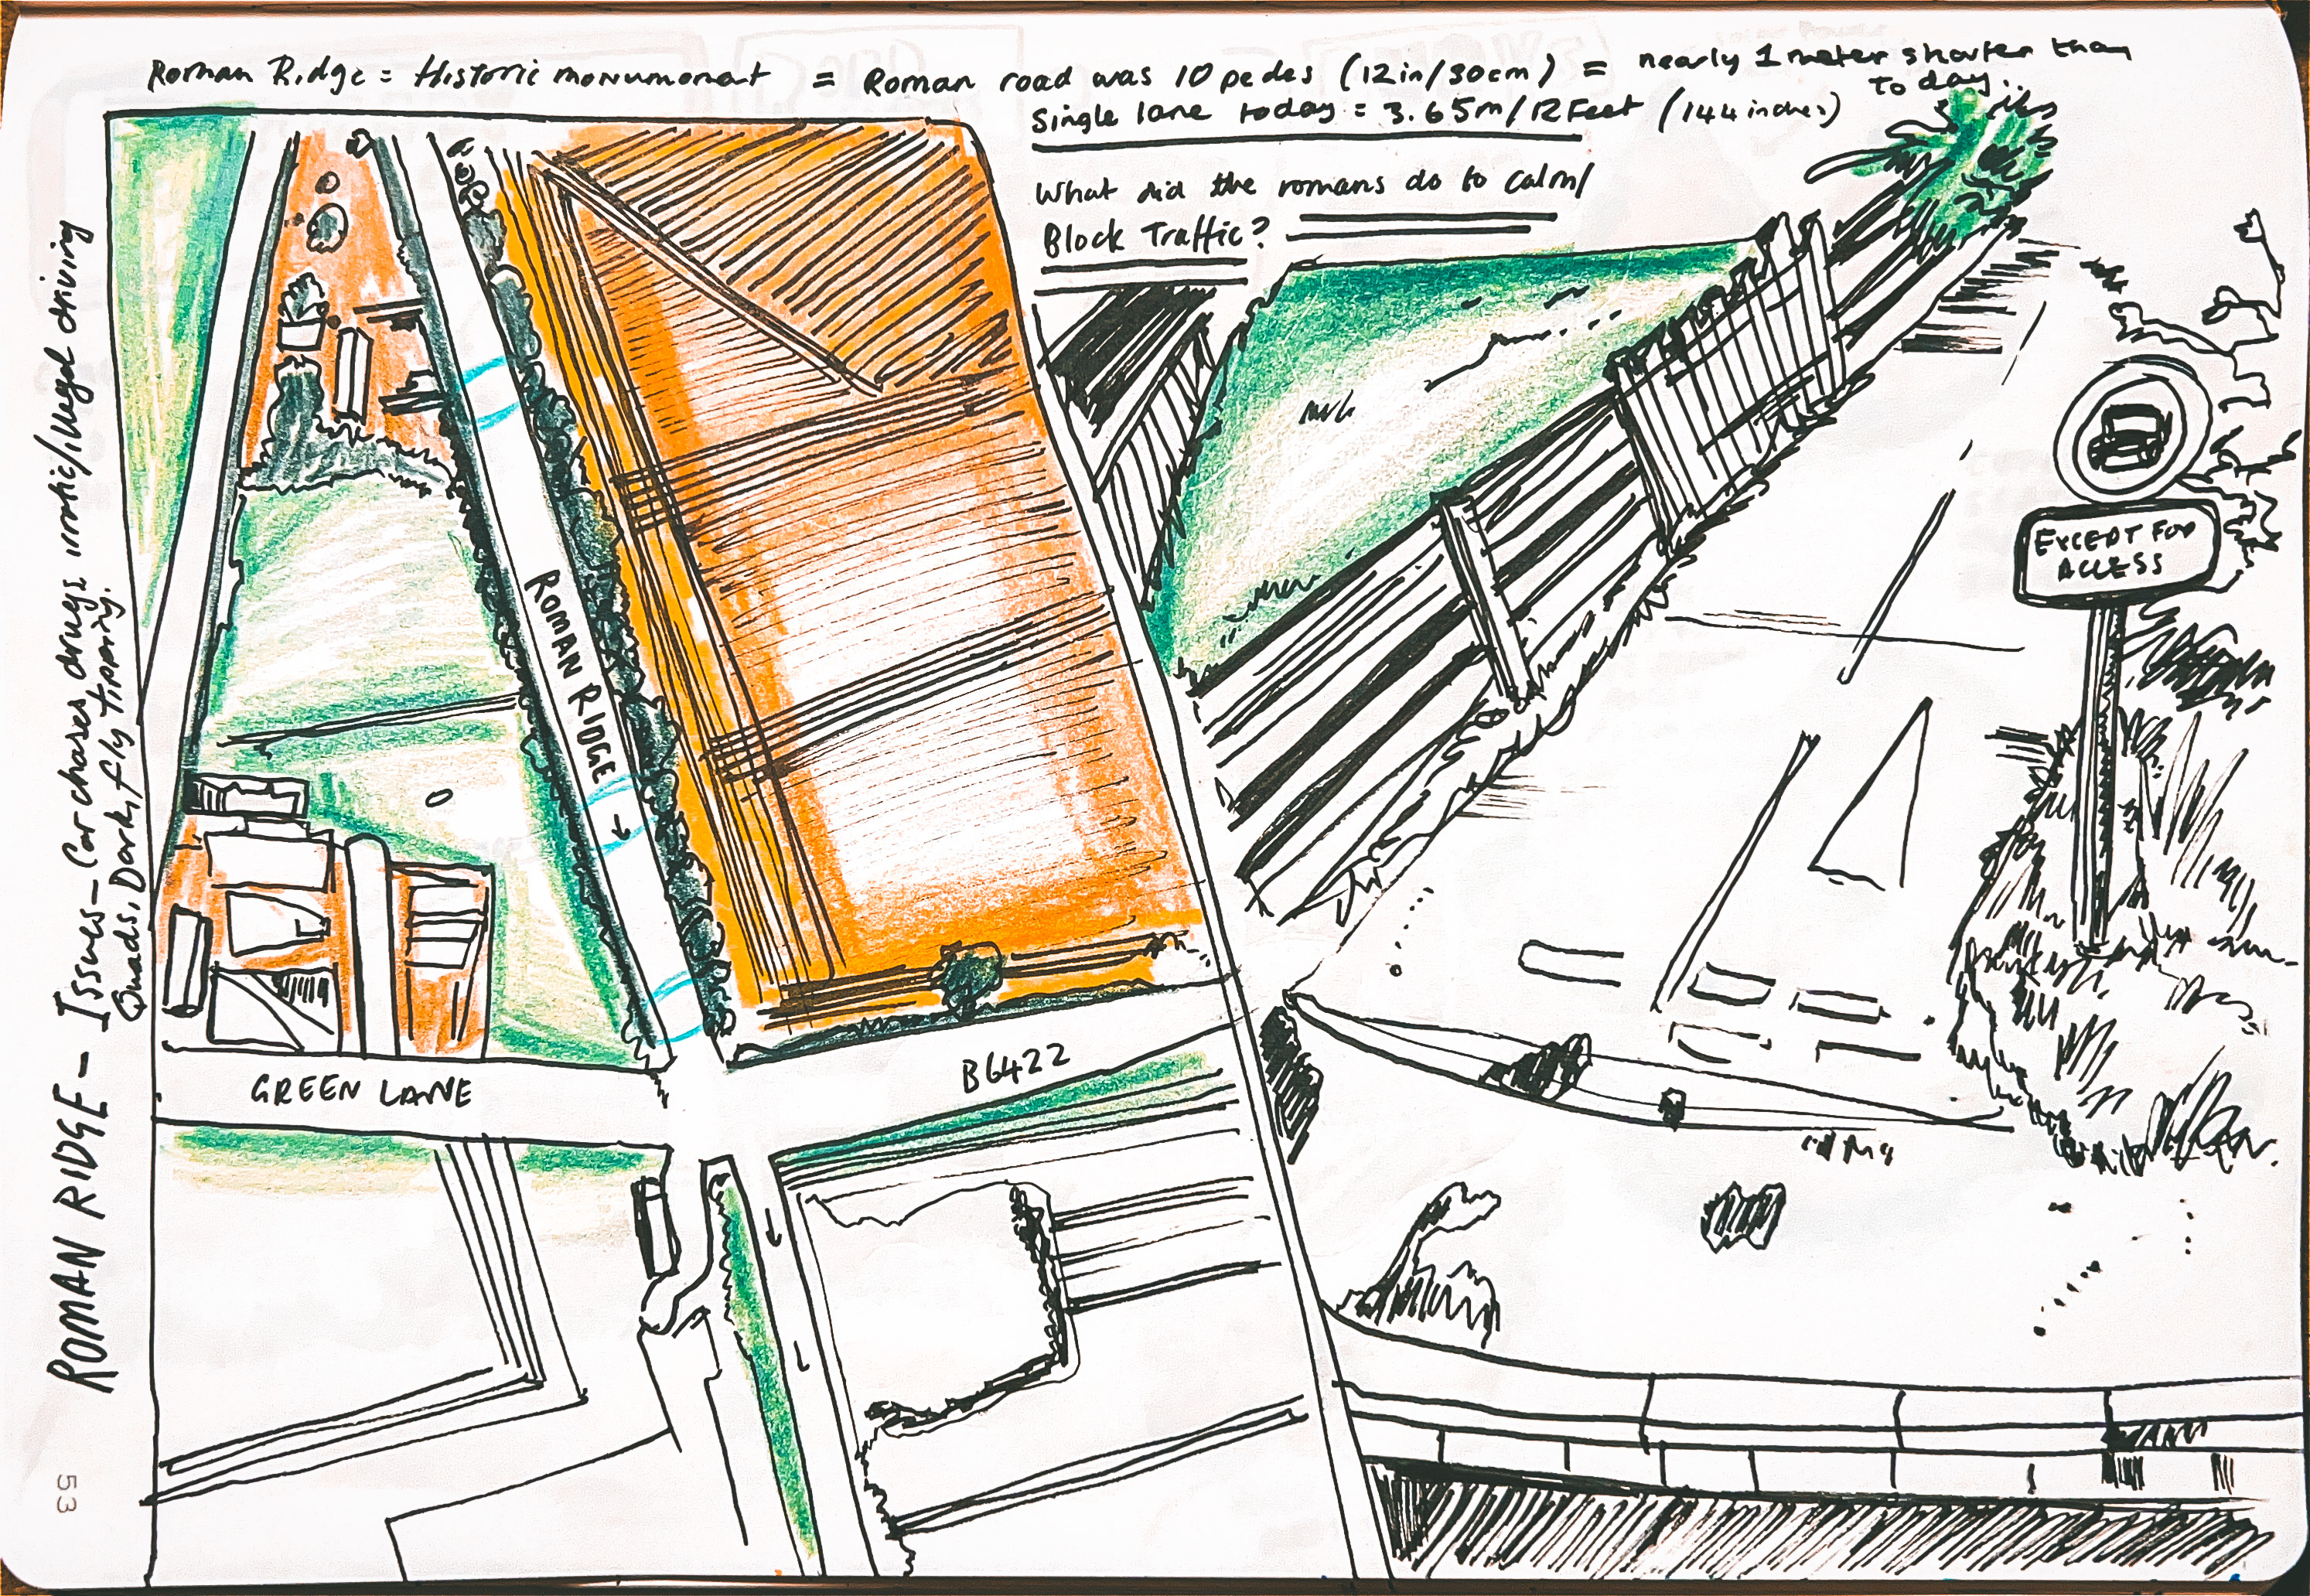 Roman Ridge = Historic monumonent = Roman road was 10 pedes (12in/30cm) = nearly 1 meter shorter than today..
Single lane today = 3.65m/12 Feet (144 inches)
What did the romans do to calm/
Block Traffic?
ROMAN RIDGE - Issues - Car chases, drugs, illegal driving
Quads, Dark, fly tipping.
ROMAN RIDGE →
EXCEPT FOR
ACCESS
GREEN LANE
B6422
53